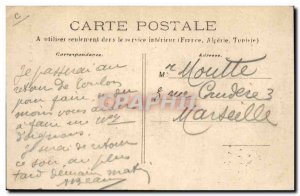 C
CARTE POSTALE
A utiliser seulement dans le service intérieur (France, Algérie, Tunisie)
Correspondance
Je passerai au
retour de Toulon
pour faire
nous vous
a faire un
d'oignons
Je serai de retour
ce soir au plus
tard demain mat
Adresse
Mr Moutte
3 rue 3
Marseille
CPARAMA